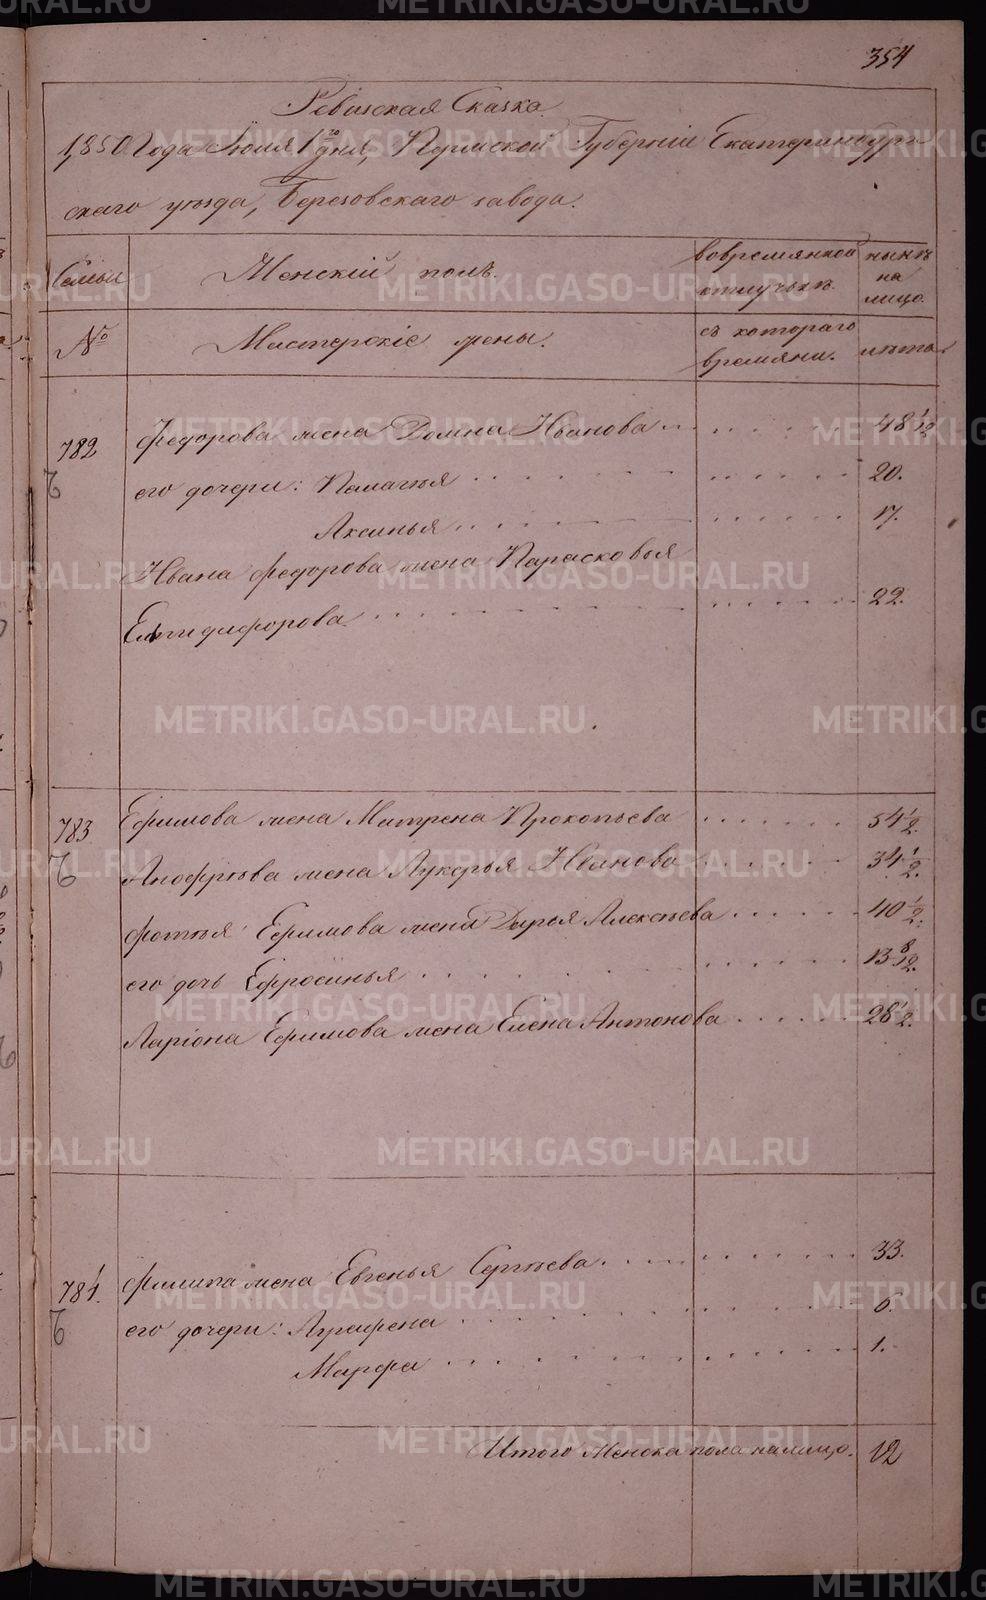 354
Ревизская Сказка.
1850 Года Июля 1го дня, Пермской Губернiи Екатеринбург-
скаго уѣзда, Березовскаго завода.
Семьи
Женскiй полъ.
во временной отлучькѣ.
нынѣ на лицо.
№
Мастерскiе жены.
съ котораго времяни.
лѣта
782
Федорова жена Домна Иванова
48 1/2
его дочери: Пелагѣя
20.
Аксинья
17.
Ивана Федорова жена Парасковья
Елпидифорова
22.
783
Ефимова жена Матрена Прокопьева
54 1/2.
Анофрѣева жена Лукерья Иванова
34 1/2.
Фотѣя Ефимова жена Дарья Алексѣева
40 1/2.
его дочь Ефросинья
13 8/12.
Ларiона Ефимова жена Елена Антонова
28 1/2.
784.
Филипа жена Евгенья Сергѣева
33.
его дочери: Аграфена
6.
Марфа
1.
Итого женска пола на лицо.
12
METRIKI.GASO-URAL.RU